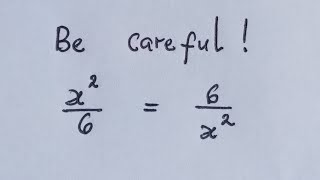 Be careful!
x²/6 = 6/x²